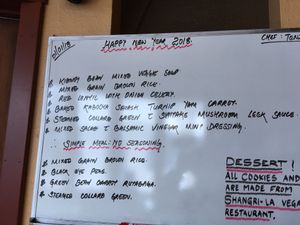 1/01/18
HAPPY NEW YEAR 2018.
CHEF: TON
KIDNEY BEAN MIXED VEGGIE SOUP
MIXED GRAIN BROWN RICE.
RED LENTIL WITH ONION CELERY.
BAKED KABOCHA SQUASH TURNIP YAM CARROT.
STEAMED COLLARD GREEN C SHITAKE MUSHROOM LEEK SAUCE.
MIXED SALAD C BALSAMIC VINEGAR MINT DRESSING.
SIMPLE MEAL: NO SEASONING.
MIXED GRAIN BROWN RICE.
BLACK EYE PEAS.
GREEN BEAN CARROT RUTABAGA.
STEAMED COLLARD GREEN.
DESSERT!
ALL COOKIES AND
ARE MADE FROM
SHANGRI-LA VEGA
RESTAURANT.